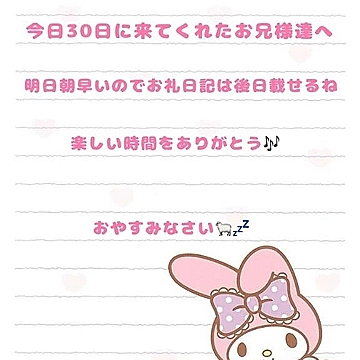 今日30日に来てくれたお兄様達へ
明日朝早いのでお礼日記は後日載せるね
楽しい時間をありがとう🎶
おやすみなさい🐑💤